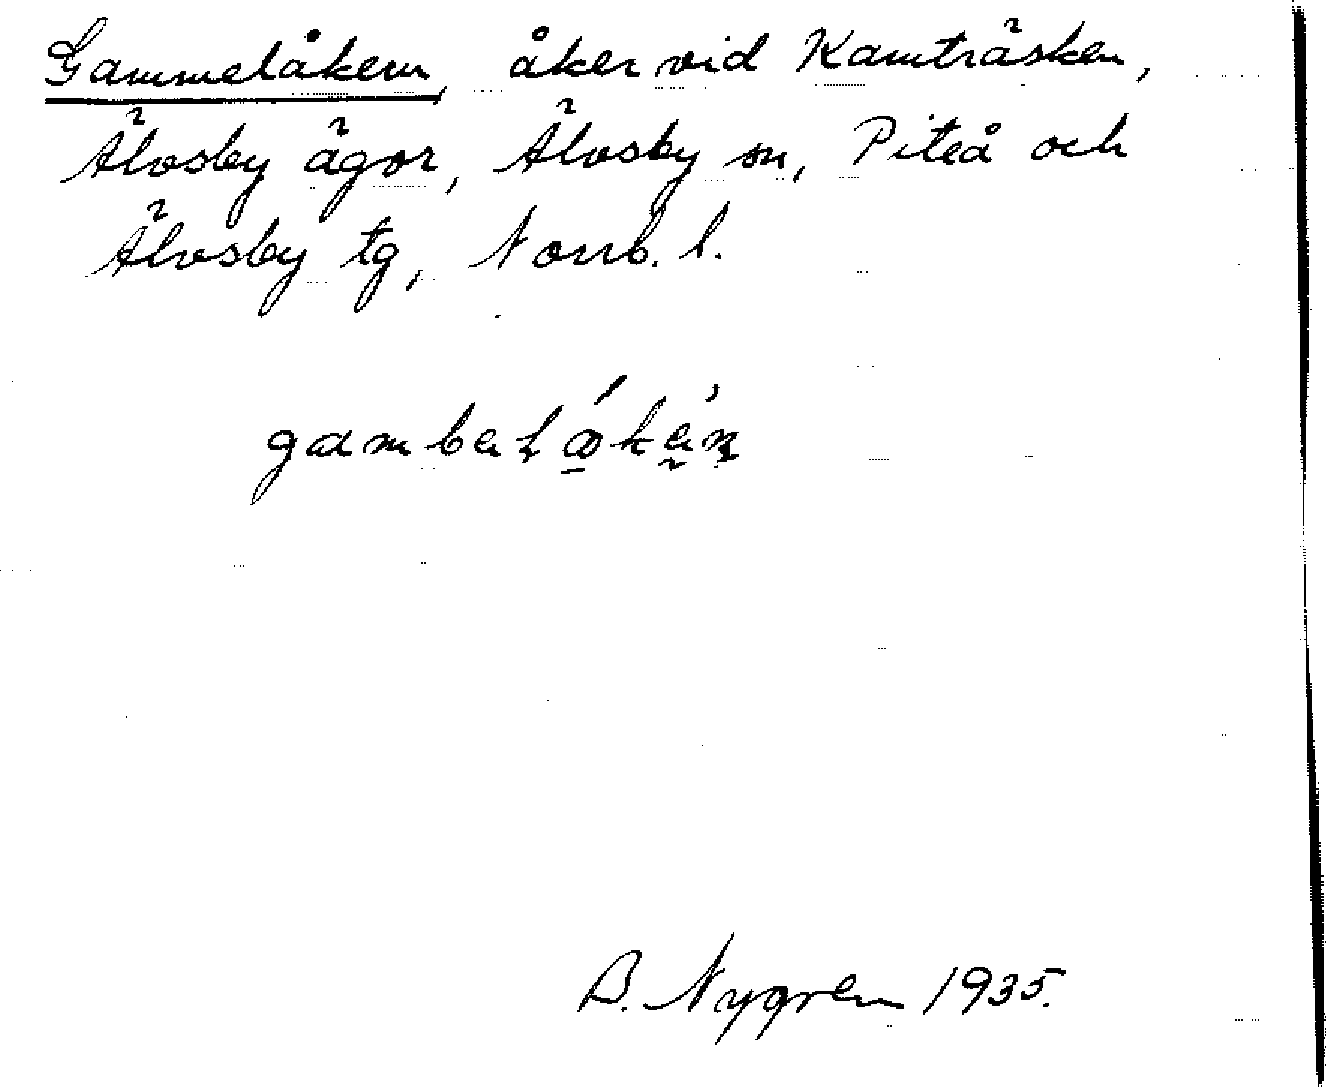 Gammelåkern, åker vid Kamträsken,
Älvsby ägor, Älvsby sn, Piteå och
Älvsby tg, Norrb. l.
B. Nygren 1935.